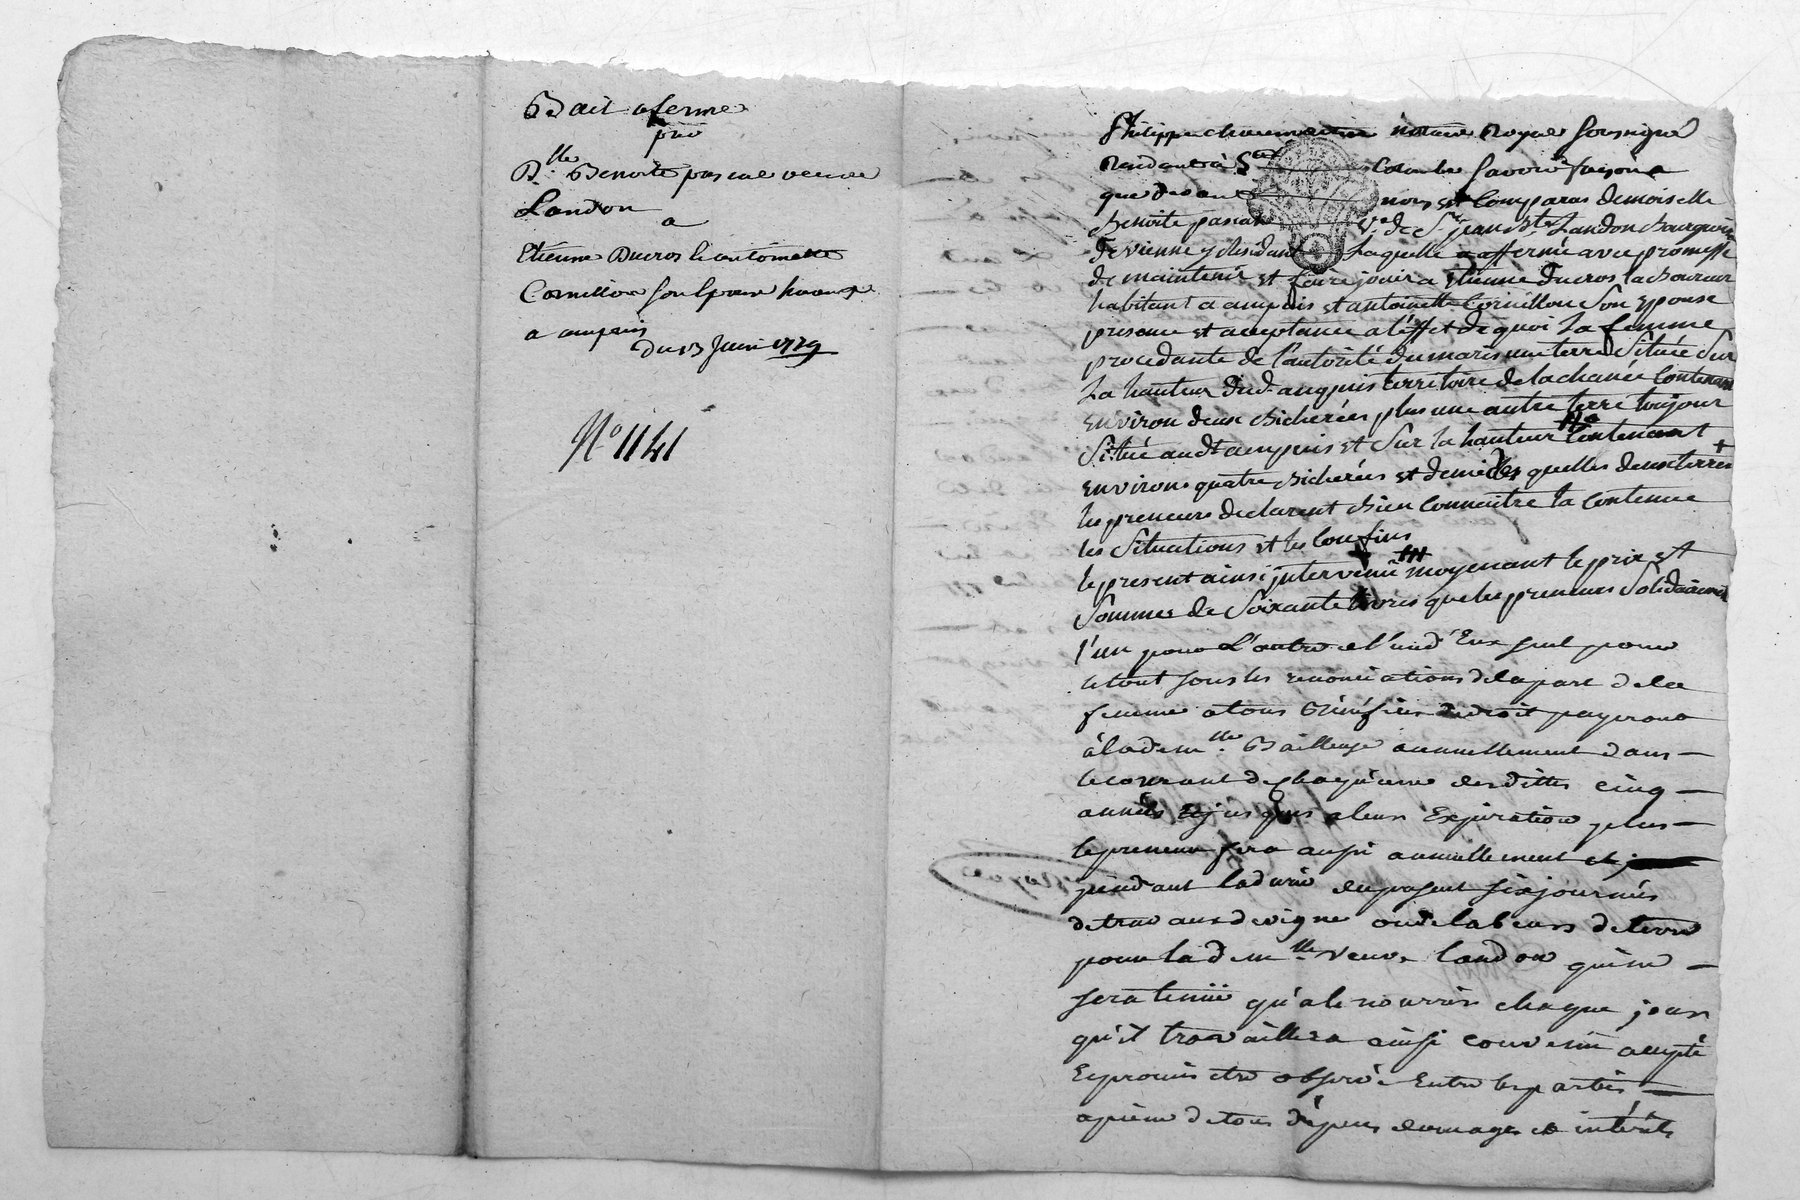 Bail a ferme
par
D.lle Benoite pascal veuve
Landon
a
Etienne Ducros & antoinette
Cornillon son épouse
a ampuis
du 13 Juin 1779
N° 1141
Philippe notaire Royal soussigné
Residant à Ste Colombe savoir faisons
que devant nous est Comparue demoiselle
Benoite pascal v.e de S.r jean B.te Landon Bourgeois
de vienne y residant Laquelle a affermé avec promesse
de maintenir et faire jouir a Etienne Ducros laboureur
habitant a ampuis et antoinette Cornillon Son Epouse
presents et acceptants a l'effet de quoi La femme
procedante de l'autorité du mari une terre Située Sur
La hauteur dud. ampuis territoire de la chanée Contenant
environ deux Bicherées plus une autre terre toujour
Située aud.t ampuis et Sur la hauteur Contenant
environ quatre Bicherées et demie les quelles deux terres
les preneurs declarent Bien Connaitre la Contenue
les Situations et les Confins
le present ainsi intervenu moyenant le prix et
Somme de Soixante livres que les preneurs Solidairement
l'un pour L'autre et l'un d'Eux seul pour
le tout sous les renonciations de la part de la
femme a tous Bénéfices de droit payeront
à lade m.lle Bailleuse annuellement dans
le courant de chaqu'une desdittes cinq
années Et jusques a leur Expiration plus
le preneur fera aussi annuellement et
pendant la durée du present six journées
de travaux de vigne ou de labeurs de terre
pour lad em.lle veuve landon qui ne
sera tenüe qu'a le nourrir chaque jour
qu'il travaillera ainsi convenu accepté
Et promis etre observé Entre les parties
a peine de tous dépens domages et intérêts